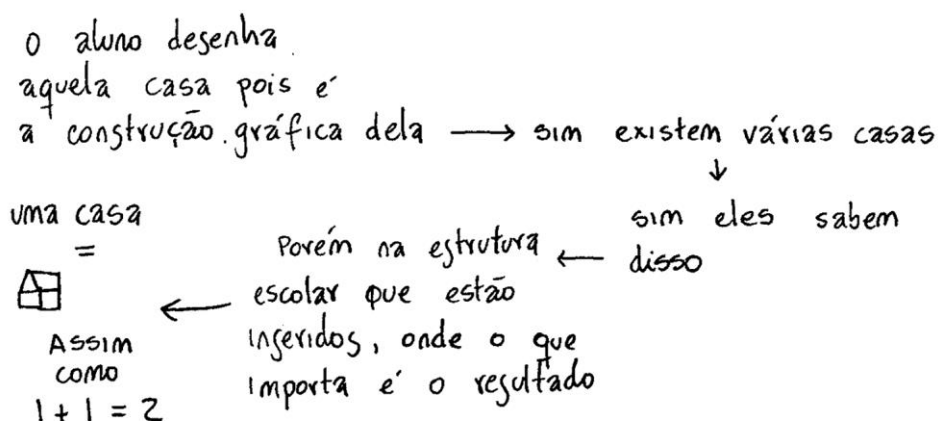 o aluno desenha
aquela casa pois é
a construção gráfica dela → sim existem várias casas
↓
sim eles sabem
disso
← Porém na estrutura
escolar que estão
inseridos, onde o que
importa é o resultado
←
uma casa
=
Assim
como
1 + 1 = 2